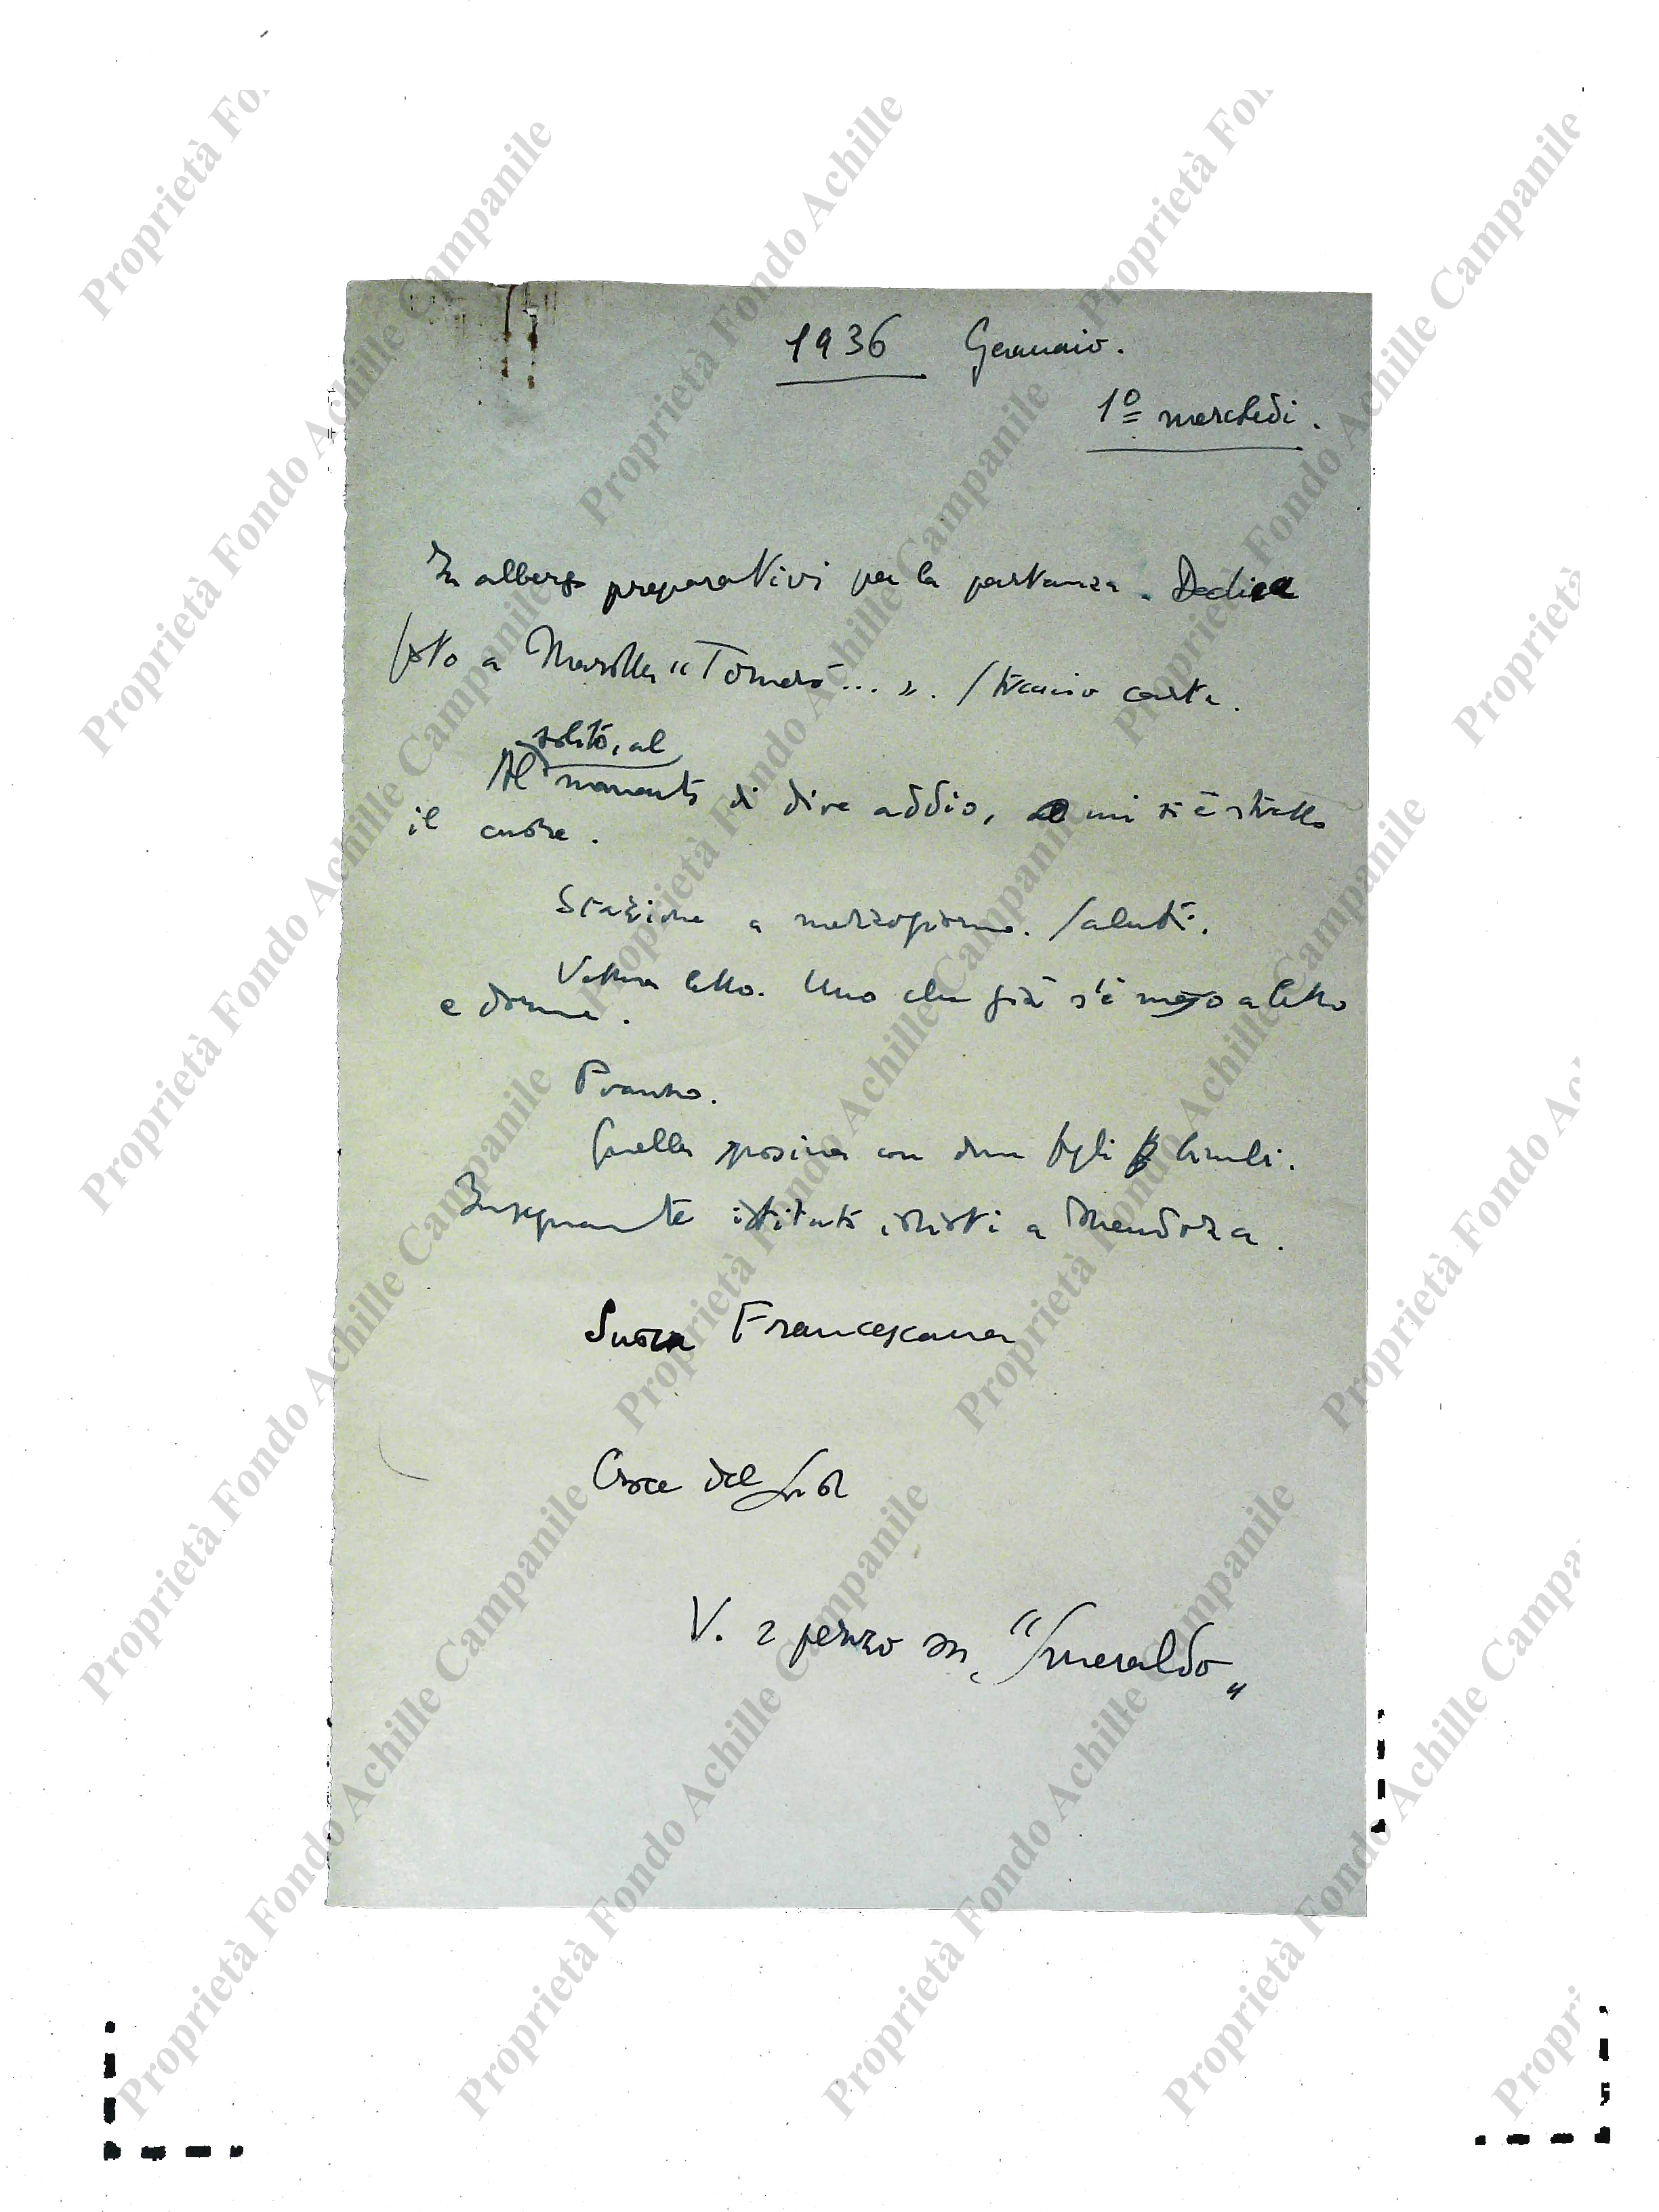 1936 Gennaio.
1º mercoledì.
In albergo preparativi per la partenza. Dedica
foto a "Tornerò...". Straccio carta.
solito, al
Al momento di dire addio, mi si è stretto
il cuore.
Stazione a mezzogiorno. Saluti.
Vettura letto. Uno che già s'è messo a letto
e dorme.
Pranzo.
Quella sposina con due figli bimbi.
Insegnante istituti a Mendoza.
Suora Francescana
Croce del Sud
V. 2 pezzo su "Smeraldo"
Proprietà Fondo Achille Campanile